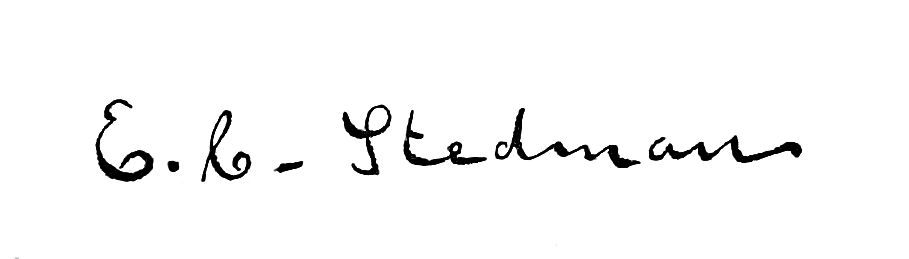 E. C. Stedman